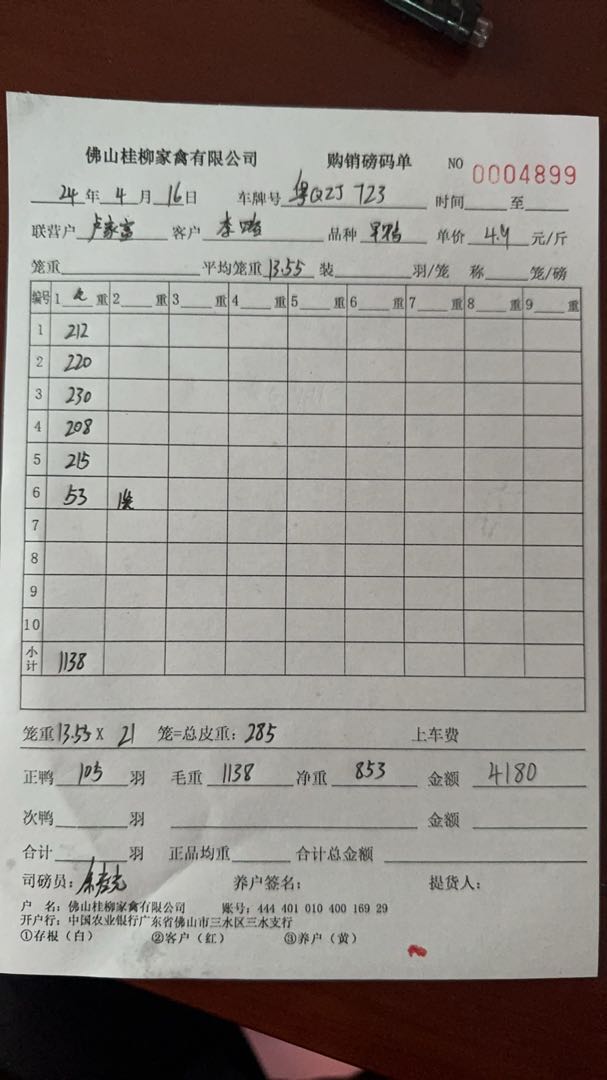 佛山桂柳家禽有限公司 购销磅码单 NO 0004899
24年4月16日 车牌号 粤Q2J 723 时间 至
联营户 卢家富 客户 李 品种 单价 4.9 元/斤
笼重 平均笼重 13.55 装 羽/笼 称 笼/磅
编号 1 重 2 重 3 重 4 重 5 重 6 重 7 重 8 重 9 重
1 212
2 220
3 230
4 208
5 215
6 53
7
8
9
10
小计 1138
笼重 13.55 X 21 笼=总皮重: 285 上车费
正鸭 105 羽 毛重 1138 净重 853 金额 4180
次鸭 羽 金额
合计 羽 正品均重 合计总金额
司磅员: 养户签名: 提货人:
户 名: 佛山桂柳家禽有限公司 账号: 444 401 010 400 169 29
开户行: 中国农业银行广东省佛山市三水区三水支行
①存根(白) ②客户(红) ③养户(黄)